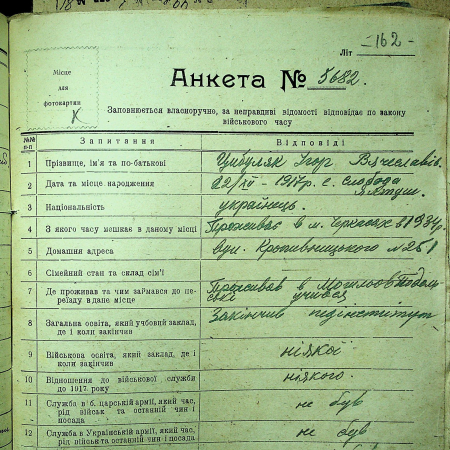 Літ -162-
Місце
для
фотокартки
Анкета № 5682.
Заповнюється власноручно, за неправдиві відомості відповідає по закону
військового часу
№№ п-п Запитання Відповіді
1 Прізвище, ім'я та по-батькові Цибуляк Ігор Вячеславів.
2 Дата та місце народження 22/IV - 1917р. с. Слобода
Ялтуш.
3 Національність українець.
4 З якого часу мешкає в даному місці Проживає в м. Черкасах з 1934р.
5 Домашня адреса вул. Кропивницького № 25
6 Сімейний стан та склад сім'ї
7 Де проживав та чим займався до пе-
реїзду в дане місце Проживав в Могилові Подоль-
ські учився
8 Загальна освіта, який учбовий заклад,
де і коли закінчив Закінчив педінститут
9 Військова освіта, який заклад, де і
коли закінчив ніякої
10 Відношення до військової служби
до 1917 року ніякого.
11 Служба в б. царській армії, який час,
рід військ та останній чин і
посада не був
12 Служба в Українській армії, який час,
рід військ та останній чин і посада не був